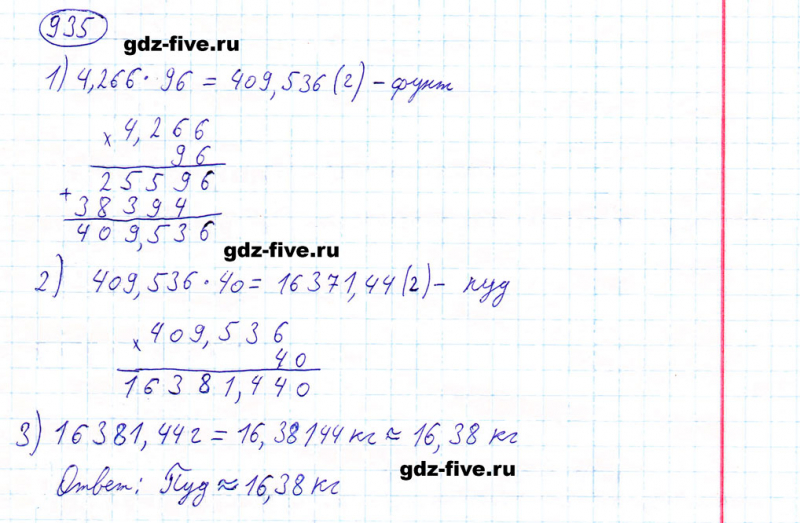 935
gdz-five.ru
1) 4,266 · 96 = 409,536 (г) - фунт
× 4,266
96
+ 25596
38394
409,536
gdz-five.ru
2) 409,536 · 40 = 16371,44 (г) - пуд
× 409,536
40
16381,440
3) 16381,44 г = 16,38144 кг ≈ 16,38 кг
gdz-five.ru
Ответ: Пуд ≈ 16,38 кг